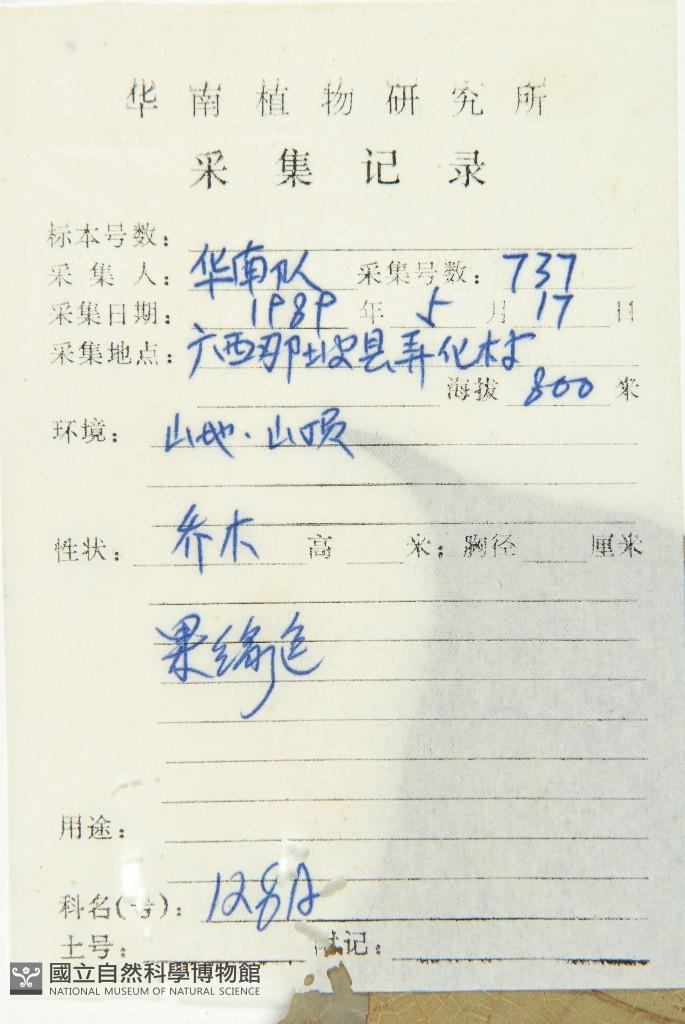 华南植物研究所
采集记录
标本号数:
采集人: 华南队 采集号数: 737
采集日期: 1989 年 5 月 17 日
采集地点: 广西那坡县弄化村
海拔 800 米
环境: 山地.山顶
性状: 乔木 高 米; 胸径 厘米
果绿色
用途:
科名(号): 128A
土号: 附记:
國立自然科學博物館
NATIONAL MUSEUM OF NATURAL SCIENCE